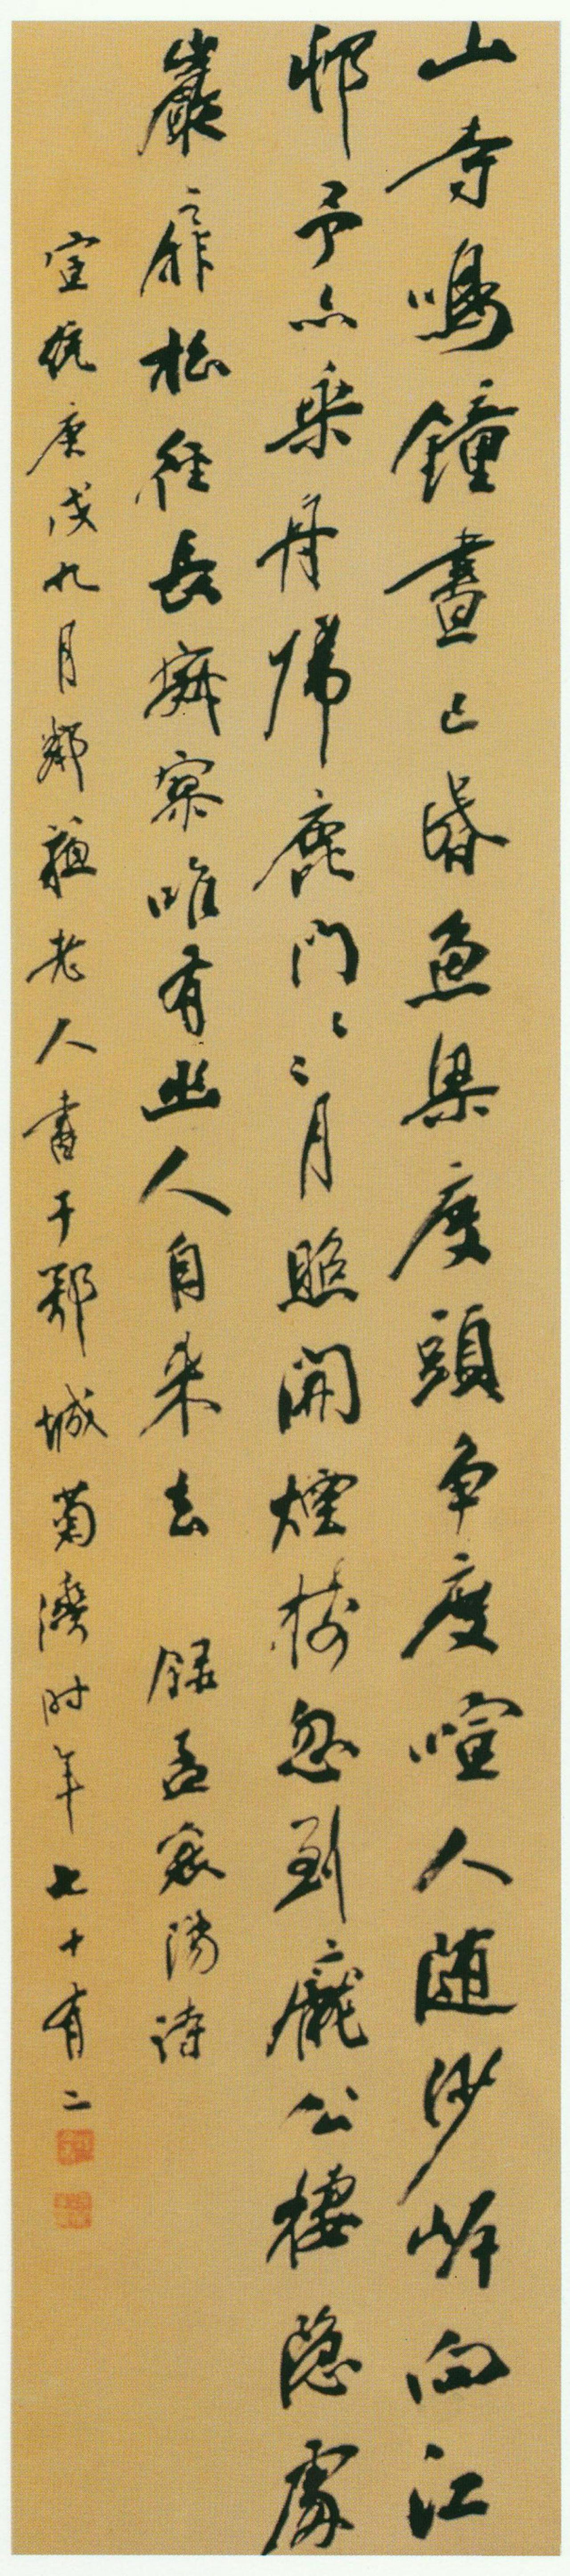 山寺鳴鐘晝已昏魚梁度頭争度喧人随沙岸向江
邨予亦乘舟歸鹿門〻〻月照開煙樹忽到龐公棲隱處
巖扉松徑長寂寥唯有幽人自来去 録孟襄陽詩
宣統庚戌九月鄰蘇老人書于鄂城菊灣時年七十有二